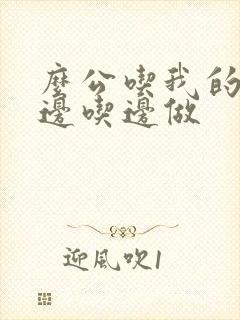 麼公喫我的
邊喫邊做
迎風吹1